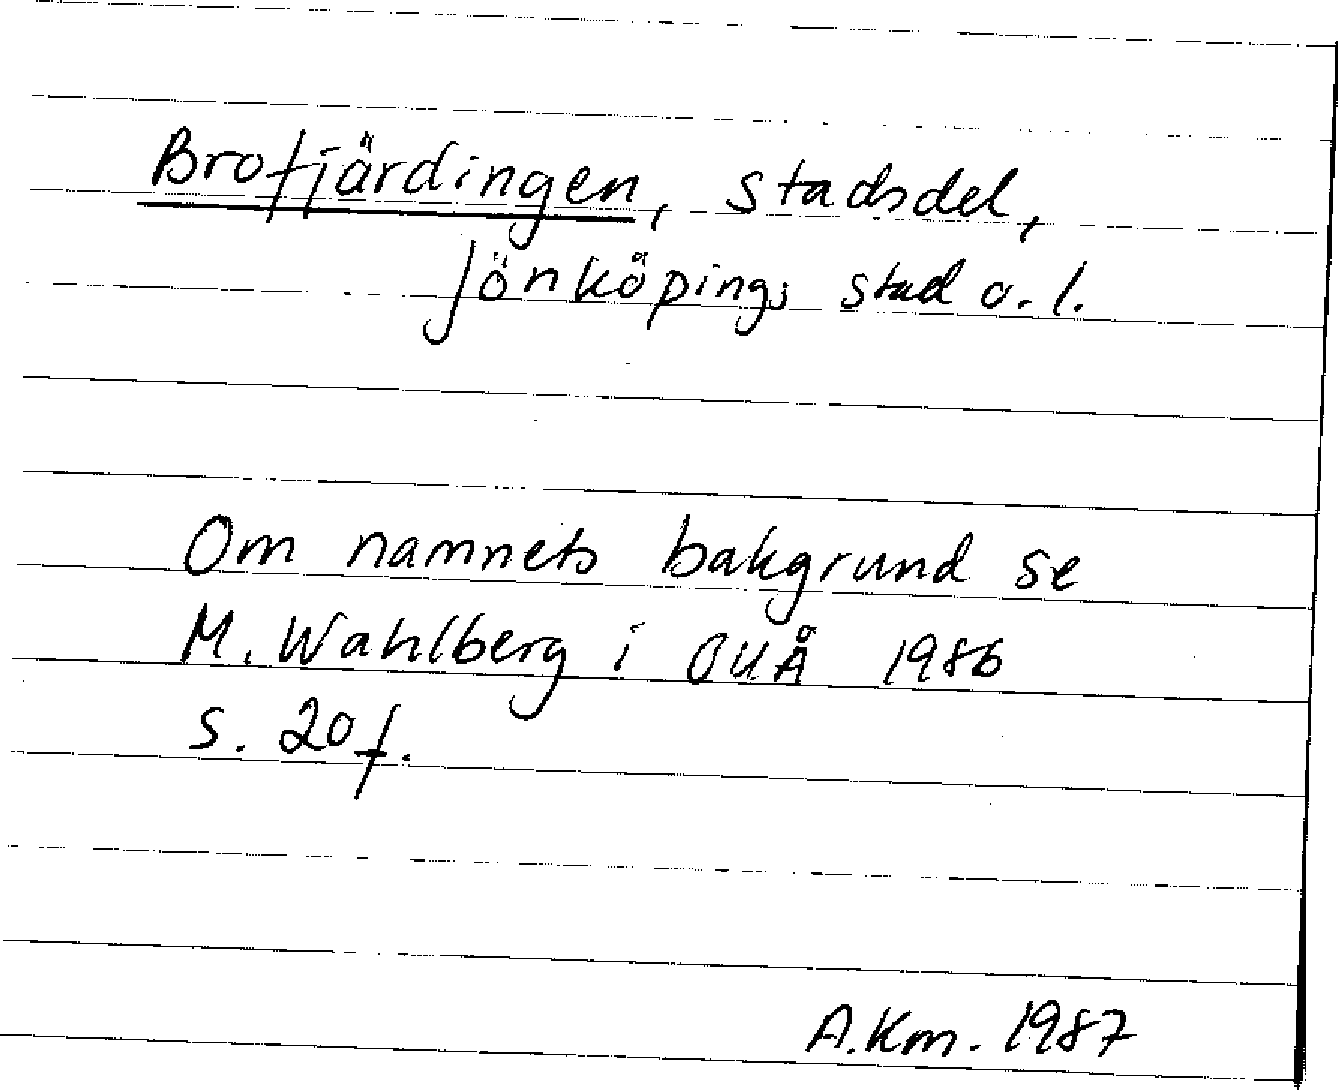 Brofjärdingen, stadsdel,
Jönköpings stad o. l.
Om namnets bakgrund se
M. Wahlberg i OUÅ 1986
s. 20 f.
A.Km. 1987